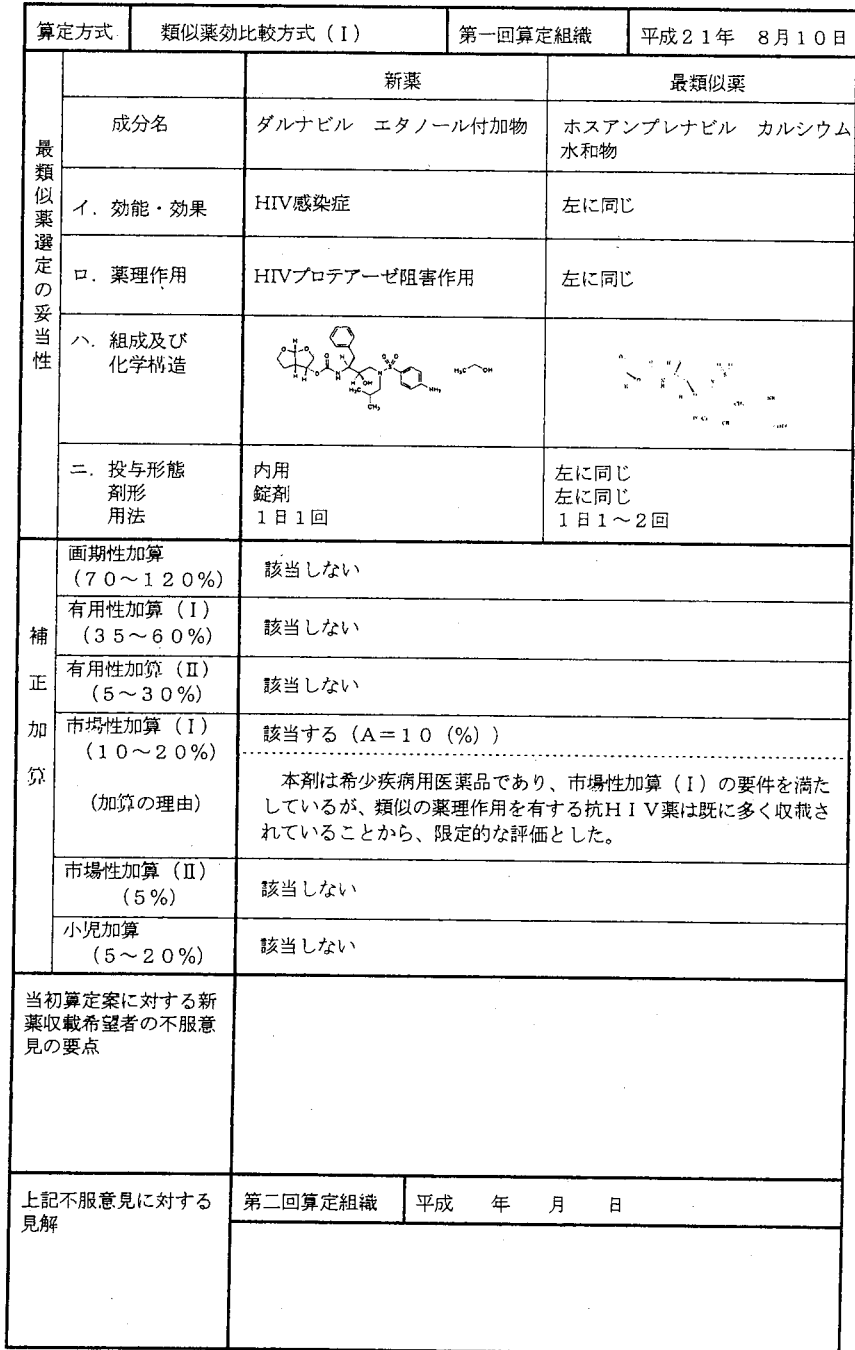 算定方式 類似薬効比較方式(Ⅰ) 第一回算定組織 平成21年 8月10日
最類似薬選定の妥当性
新薬 最類似薬
成分名 ダルナビル エタノール付加物 ホスアンプレナビル カルシウム
水和物
イ.効能・効果 HIV感染症 左に同じ
ロ.薬理作用 HIVプロテアーゼ阻害作用 左に同じ
ハ.組成及び
化学構造
ニ.投与形態 内用 左に同じ
剤形 錠剤 左に同じ
用法 1日1回 1日1~2回
補正加算
画期性加算
(70~120%) 該当しない
有用性加算(Ⅰ)
(35~60%) 該当しない
有用性加算(Ⅱ)
(5~30%) 該当しない
市場性加算(Ⅰ)
(10~20%) 該当する(A=10(%))
(加算の理由)
本剤は希少疾病用医薬品であり、市場性加算(Ⅰ)の要件を満た
しているが、類似の薬理作用を有する抗HIV薬は既に多く収載さ
れていることから、限定的な評価とした。
市場性加算(Ⅱ)
(5%) 該当しない
小児加算
(5~20%) 該当しない
当初算定案に対する新
薬収載希望者の不服意
見の要点
上記不服意見に対する
見解
第二回算定組織 平成 年 月 日